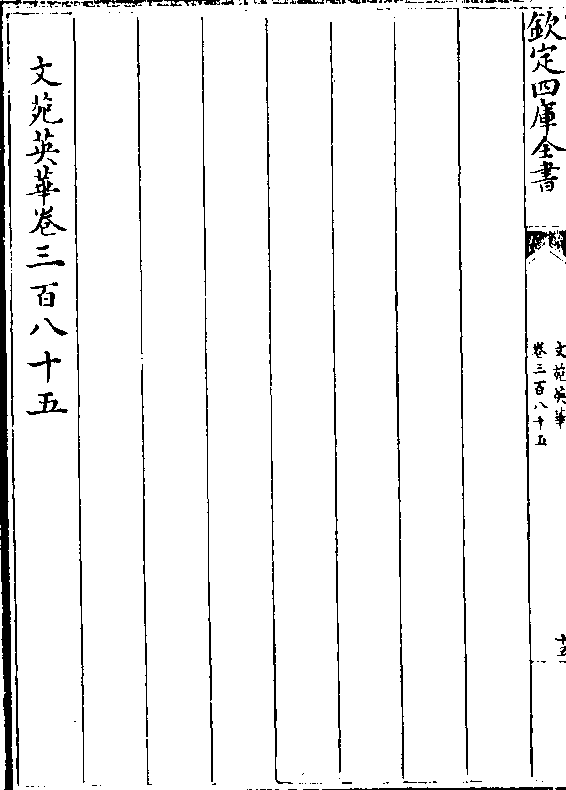 欽定四庫全書
文苑英華
卷三百八十五
十五
文苑英華卷三百八十五